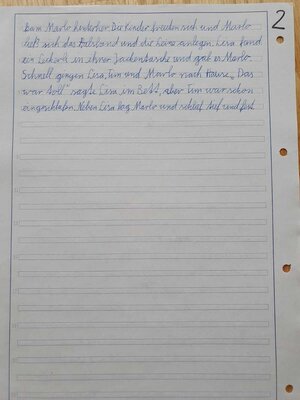 2
kam Marlo hinterher. Die Kinder freuten sich und Marlo
ließ sich das Halsband und die Leine anlegen. Lisa fand
ein Leckerli in ihrer Jackentasche und gab es Marlo.
Schnell gingen Lisa, Tim und Marlo nach Hause. „Das
war toll" sagte Lisa im Bett, aber Tim war schon
eingeschlafen. Neben Lisa lag Marlo und schlief tief und fest.